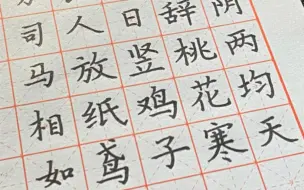 阴两均天
辞桃花寒
日竖鸡子
人放纸鸢
司马相如